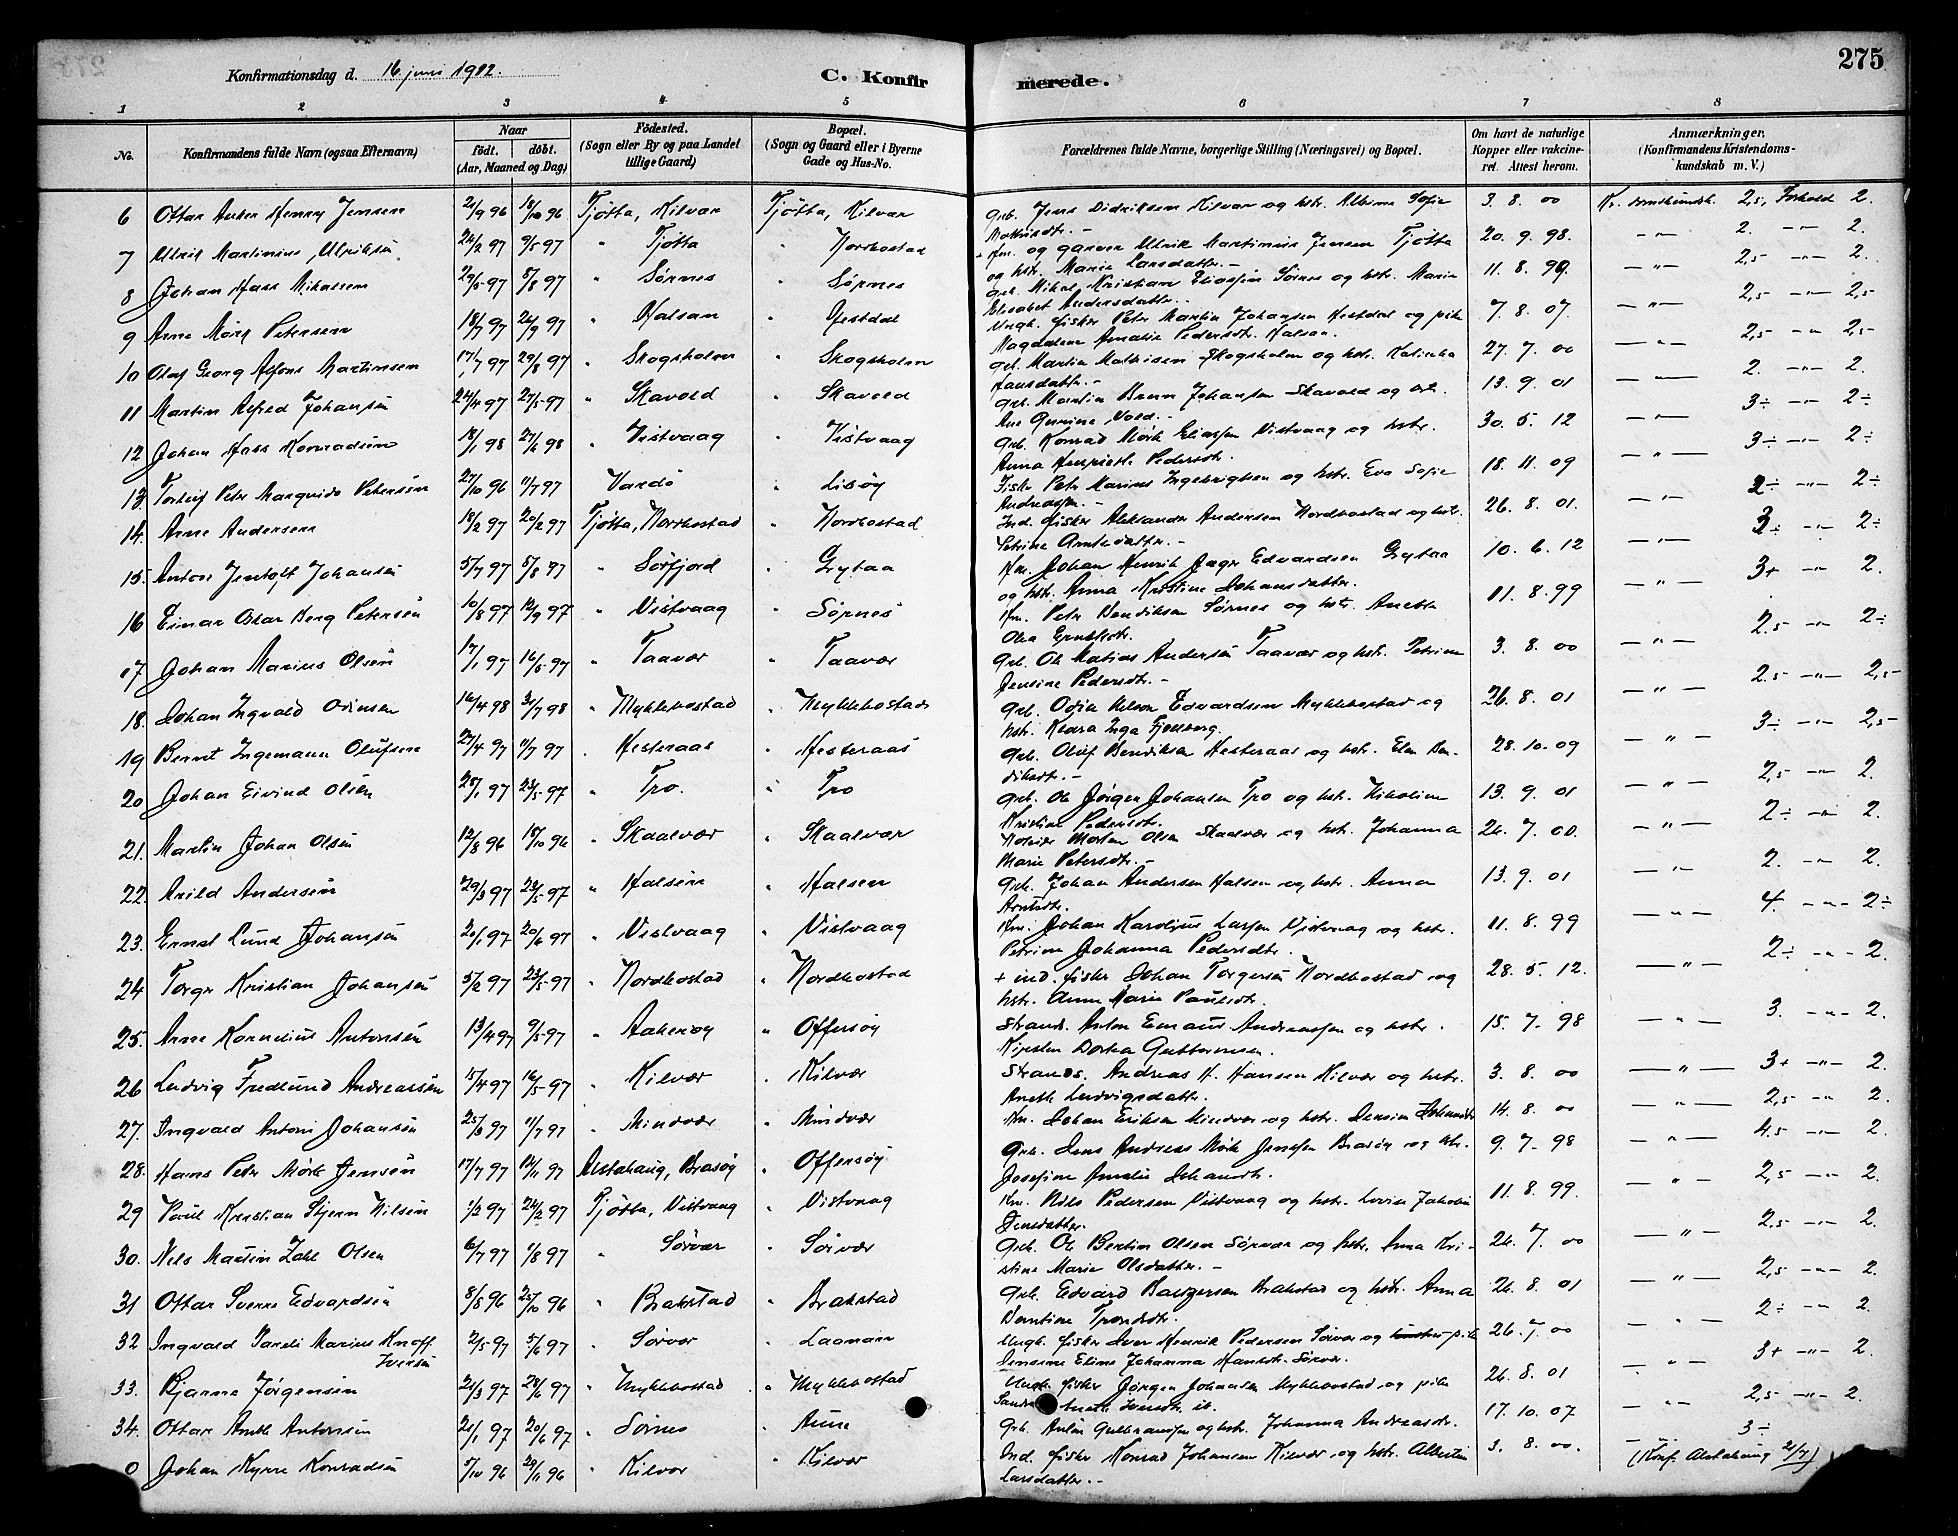 275
Konfirmationsdag d. 16 juni 1912.
C. Konfirmerede.
1 2 3 4 5 6 7 8
No. Konfirmandens fulde Navn (ogsaa Efternavn) Naar födt. döbt. (Aar, Maaned og Dag) Födested. (Sogn eller By og paa Landet tillige Gaard.) Bopæl. (Sogn og Gaard eller i Byerne Gade og Hus-No. Forældrenes fulde Navne, borgerlige Stilling (Næringsvei) og Bopæl. Om havt de naturlige Kopper eller vakcineret. Attest herom. Anmærkninger. (Konfirmandens Kristendomskundskab m. V.)
6 Ottar Henry Jensen 21/9 96 18/10 96 Tjøtta, Kilvær Tjøtta, Kilvær Grb. Jens Didriksen Kilvær og hstr. Albine Sofie 3. 8. 00 2,5 Forhold 2.
7 Ulrik Martinius Ulriksen 24/2 97 9/5 97 " Tjøtta " Nordbostad + Km. og garver Ulrik Martinius Jensen Tjøtta og hstr. Marie Larsdatter.- 20. 9. 98. — " — 2. — " — 2.
8 Johan Hass Mikalsen 29/5 97 8/8 97 " Sørnes " Sørnes Grb. Mikal Kristian Eliassen Sørnes og hstr. Marie Elisabet Andersdatter.- 11. 8. 99. — " — 2,5 — " — 2.
9 Arne Mørk Petersen 18/7 97 26/9 97 " Halsan " Hestdal Ungk. fisker Peter Martin Johansen Hestdal og pike Magdalena Amalie Pedersdtr. Halsen. 7. 8. 07. — " — 2,5 — " — 2,5
10 Olaf Georg Alfons Martinsen 17/7 97 29/8 97 " Skogsholm " Skogsholm Grb. Martin Mathisen Skogsholm og hstr. Katinka Larsdatter.- 27. 7. 00 — " — 2,5 — " — 2,5
11 Martin Alfred Johansen 24/4 97 27/5 97 " Skavold " Skavold Grb. Martin Brun Johansen Skavold og hstr. Ane Gurine Vold.- 13. 9. 01 — " — 2. — " — 2.
12 Johan Hass Konradsen 18/1 98 27/6 98 " Vistvaag " Vistvaag Grb. Konrad Mørk Eliassen Vistvaag og hstr. Anna Henriette Pedersdtr. 30. 5. 12 — " — 3÷ — " — 2÷
13. Torleif Peter Margvido Petersen 27/10 96 11/7 97 Vardø " Lisøy Fisker Peter Marius Ingebrigtsen og hstr. Eva Sofie Andreassen.- 18. 11. 09 — " — 3÷ — " — 2÷
14. Arne Andersen 18/2 97 20/2 97 Tjøtta, Nordbostad " Nordbostad Ind. fisker Aleksander Andersen Nordbostad og hstr. Petrine Arntsdatter.- 26. 8. 01. — " — 2÷ — " — 2÷
15. Anton Jentoft Johansen 5/7 97 8/8 97 " Sørfjord " Grytaa Km. Johan Henrik Jager Edvardsen Grytaa og hstr. Anna Kristine Johansdatter. 10. 6. 12 — " — 3÷ — " — 2÷
16 Einar Oskar Berg Petersen 10/8 97 12/9 97 " Vistvaag " Sørnes Km. Peter Bendiksen Sørnes og hstr. Anetta Olea Ernstdtr. 11. 8. 99 — " — 3+ — " — 2.
17 Johan Marius Olsen 17/1 97 16/5 97 " Taavær " Taavær Grb. Ole Matias Andersen Taavær og hstr. Petrine Jensine Pedersdtr.- 3. 8. 00 — " — 2.5 — " — 2÷
18. Johan Ingvald Odinsen 16/4 98 31/7 98 " Myklebostad " Myklebostad Grb. Odin Nelson Edvardsen Myklebostad og hstr. Kedra Inga Fjellberg. 26. 8. 01 — " — 2.5 — " — 2,5
19 Bernt Ingemann Olufsen 27/4 97 11/7 97 " Hesteraas " Hesteraas Grb. Oluf Bendiksen Hesteraas og hstr. Elen Bendiksdtr.- 28. 10. 09 — " — 3÷ — " — 2,5
20 Johan Eivind Olsen 28/1 97 23/5 97 " Tro. " Tro Grb. Ole Jørgen Johansen Tro og hstr. Nikoline Kristine Pedersdtr. 13. 9. 01 — " — 2,5 — " — 2.
21. Martin Johan Olsen 12/8 96 18/10 96 " Skaalvær " Skaalvær Morten Olsen Skaalvær og hstr. Johanna Marie Petersdtr.- 26. 7. 00. — " — 2÷ — " — 2.
22. Arild Andersen 29/3 97 23/5 97 " Halsen " Halsen Grb. Johan Andersen Halsen og hstr. Anna Arntsdtr. 13. 9. 01 — " — 2. — " — 2.
23. Ernst Lund Johansen 20/1 97 20/6 97 " Vistvaag " Vistvaag Km. Johan Karolius Larsen Vistvaag og hstr. Petrine Johanna Pedersdtr. 11. 8. 99 — " — 4. — " — 2÷
24 Torger Kristian Johansen 5/2 97 23/5 97 " Nordbostad " Nordbostad + ind. fisker Johan Torgersen Nordbostad og hstr. Anne Marie Paulsdtr. 28. 5. 12. — " — 2÷ — " — 2.
25. Arne Kornelius Antonsen 13/4 97 9/5 97 " Aakerøy " Offersøy Strands. Anton Emaus Andreassen og hstr. Kirsten Dorthea Guttormsen. 15. 7. 98 — " — 3. — " — 2.
26 Ludvig Fredlund Andreassen 15/4 97 16/5 97 " Kilvær " Kilvær Strands. Andreas H. Hansen Kilvær og hstr. Anette Ludvigsdatter. 3. 8. 00 — " — 3+ — " — 2.
27. Ingvald Antoni Johansen 25/3 97 11/7 97 " Mindvær " Mindvær Km. Johan Eriksen Mindvær og hstr. Jensine Johansdtr 14. 8. 00 — " — 2,5 — " — 2.
28. Hans Peter Mørk Jensen 17/7 97 14/11 97 Alstahaug, Brasøy " Offersøy Grb. Jens Andreas Mørk Jensen Brasøy og hstr. Josefine Amalie Johansdtr. 9. 7. 98 — " — 4.5 — " — 2.
29 Poul Kristian Stjern Nilsen 1/2 97 24/2 97 Tjøtta, Vistvaag " Vistvaag Km. Nils Pedersen Vistvaag og hstr. Lovise Jakobine Jensdatter. 11. 8. 99. — " — 2,5 — " — 2.
30. Nels Martin Zahl Olsen 6/7 97 1/8 97 " Sørvær " Sørvær Grb. Ole Bertin Olsen Sørvær og hstr. Anna Kristine Marie Olsdatter.- 26. 7. 00 — " — 2,5 — " — 2.
31 Ottar Sverre Edvardsen 8/8 96 25/10 96 " Brakstad " Brakstad Grb. Edvard Baltzersen Brakstad og hstr. Anna Berntine Trondsdtr. 26. 8. 01 — " — 2,5 — " — 2.
32 Ingvald Marius Knoff Iversen 2/5 97 5/6 97 " Sørvær " Ungk. fisker Iver Henrik Pedersen Sørvær og pike Jensine Eline Johanna Hansdtr. Sørvær. 26. 7. 00 — " — 2÷ — " — 2.
33. Bjarne Jørgensen 21/3 97 28/6 97 " Myklebostad " Myklebostad Ungk. fisker Jørgen Johansen Myklebostad og pike ib. 26. 8. 01 — " — 3+ — " — 2.
34. Ottar Antonsen 21/1 97 20/6 97 " Sørnes " Aune Grb. Anton Gulbransen og hstr. Johanna Andreasdtr. 17. 10. 07 — " — 2,5 — " — 2.
0 Johan Kyrre Konradsen 5/10 96 29/11 96 " Kilvær " Kilvær Ind. fisker Konrad Johansen Kilvær og hstr. Albertine Larsdatter.- 3. 8. 00. 3÷ (Konf. Alstahaug 2/7)